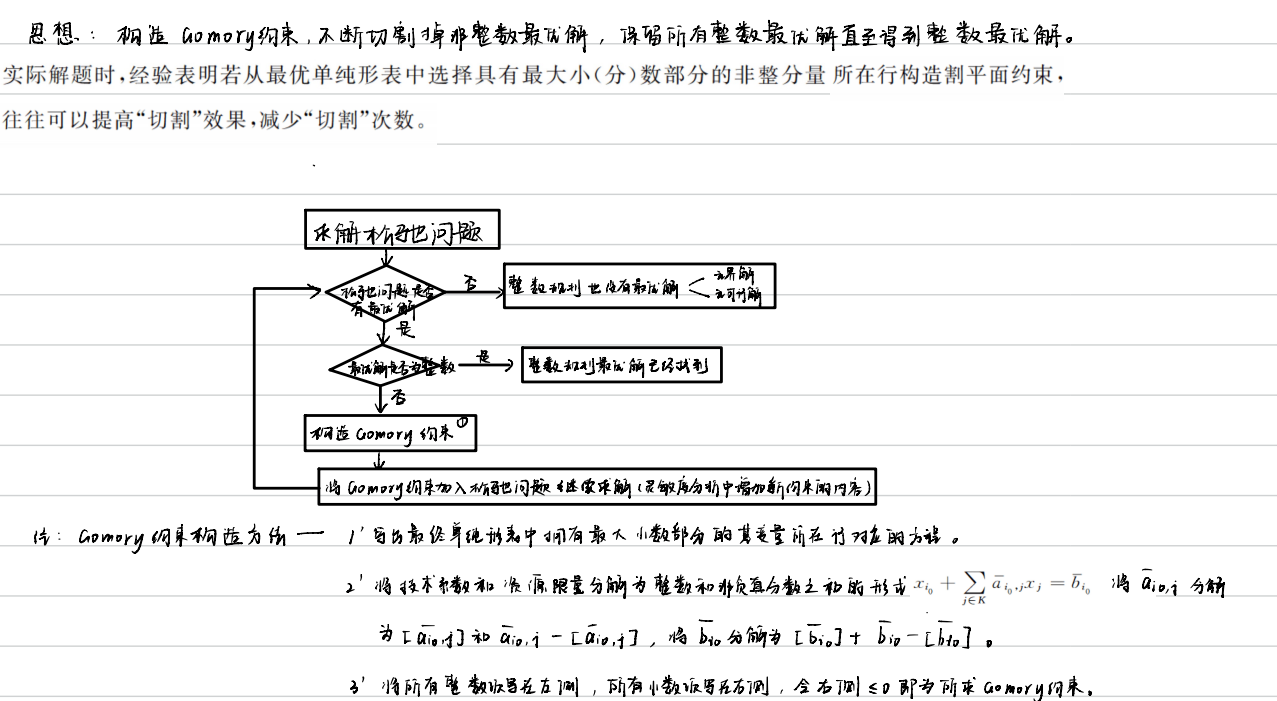 思想：构造 Gomory约束，不断切割掉非整数最优解，保留所有整数最优解直至得到整数最优解。
实际解题时,经验表明若从最优单纯形表中选择具有最大小(分)数部分的非整分量 所在行构造割平面约束,
往往可以提高“切割”效果,减少“切割”次数。
求解松弛问题
松弛问题是否
有最优解
否
整数规划也没有最优解
无界解
无可行解
是
最优解是否为整数
是
整数规划最优解已经找到
否
构造 Gomory 约束①
将 Gomory约束加入松弛问题继续求解 (灵敏度分析中增加新约束的内容)
注：Gomory 约束构造方法 — 1' 写出最终单纯形表中拥有最大小数部分的基变量所在行对应的方程。
2' 将技术系数和资源限量分解为整数和非负真分数之和的形式 $x_{i_0} + \sum_{j \in K} \bar{a}_{i_0,j} x_j = \bar{b}_{i_0}$ 将 $\bar{a}_{i_0,j}$ 分解
为 $[\bar{a}_{i_0,j}]$ 和 $\bar{a}_{i_0,j} - [\bar{a}_{i_0,j}]$，将 $\bar{b}_{i_0}$ 分解为 $[\bar{b}_{i_0}] + \bar{b}_{i_0} - [\bar{b}_{i_0}]$。
3' 将所有整数项写在左侧，所有小数项写在右侧，令右侧 ≤0 即为所求 Gomory约束。